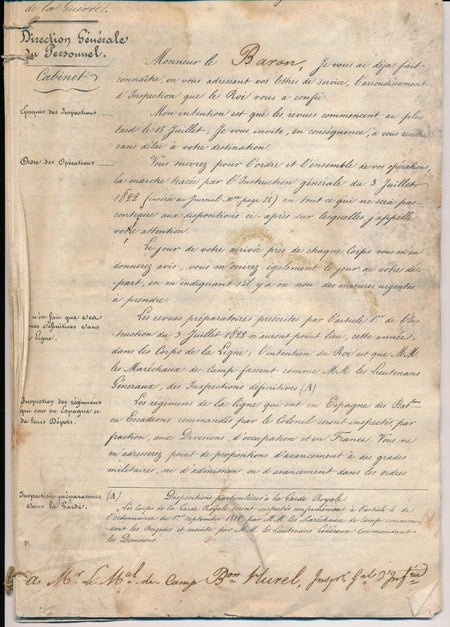 de la Guerre.
Direction Générale
du Personnel.
Cabinet
Monsieur le Baron, Je vous ai déjà fait
connaître, en vous adressant vos lettres de service, l'arrondissement
d'Inspection que le Roi vous a confié.
Époques des Inspections
Mon intention est que les revues commencent au plus
tard le 15 Juillet. Je vous invite, en conséquence, à vous rendre
sans délai à votre destination.
Ordre des Opérations
Vous suivrez pour l'ordre et l'ensemble de vos opérations,
la marche tracée par l'Instruction générale du 3 Juillet
1822 (insérée au Journal Mre page 25) en tout ce qui ne sera pas
contraire aux dispositions ci-après sur lesquelles j'appelle
votre attention.
Le jour de votre arrivée près de chaque Corps vous m'en
donnerez avis, vous m'écrirez également le jour de votre dé-
part, en m'indiquant s'il y a ou non des mesures urgentes
à prendre.
n'en fait que des
revues définitives dans
la Ligne.
Les revues préparatoires prescrites par l'article 1er de l'Ins-
truction du 3 Juillet 1822 n'auront point lieu, cette année,
dans les Corps de la Ligne, l'intention du Roi est que M.M.
les Maréchaux de Camp fassent comme M.M. les Lieutenans
Généraux, des Inspections définitives (A)
Inspection des régimens
qui sont en Espagne et
de leurs Dépôts.
Les régimens de la ligne qui ont en Espagne des Batons
ou Escadrons commandés par le Colonel seront inspectés par
fraction, aux Divisions d'occupation et en France. Vous ne
m'adresserez point de propositions d'avancement à des grades
militaires, ni d'admission, ou d'avancement dans les ordres
Inspections préparatoires
dans la Garde.
(A) Dispositions particulières à la Garde Royale.
Les Corps de la Garde Royale seront inspectés conformément à l'article 5 de
l'ordonnance du 1er Septembre par M.M. les Maréchaux de Camp comman-
dant les Brigades et ensuite par M.M. les Lieutenans Généraux commandant
les Divisions
A Mr. Le Mal. de Camp Bon Hurel, Inspr. Gal d'Infrie